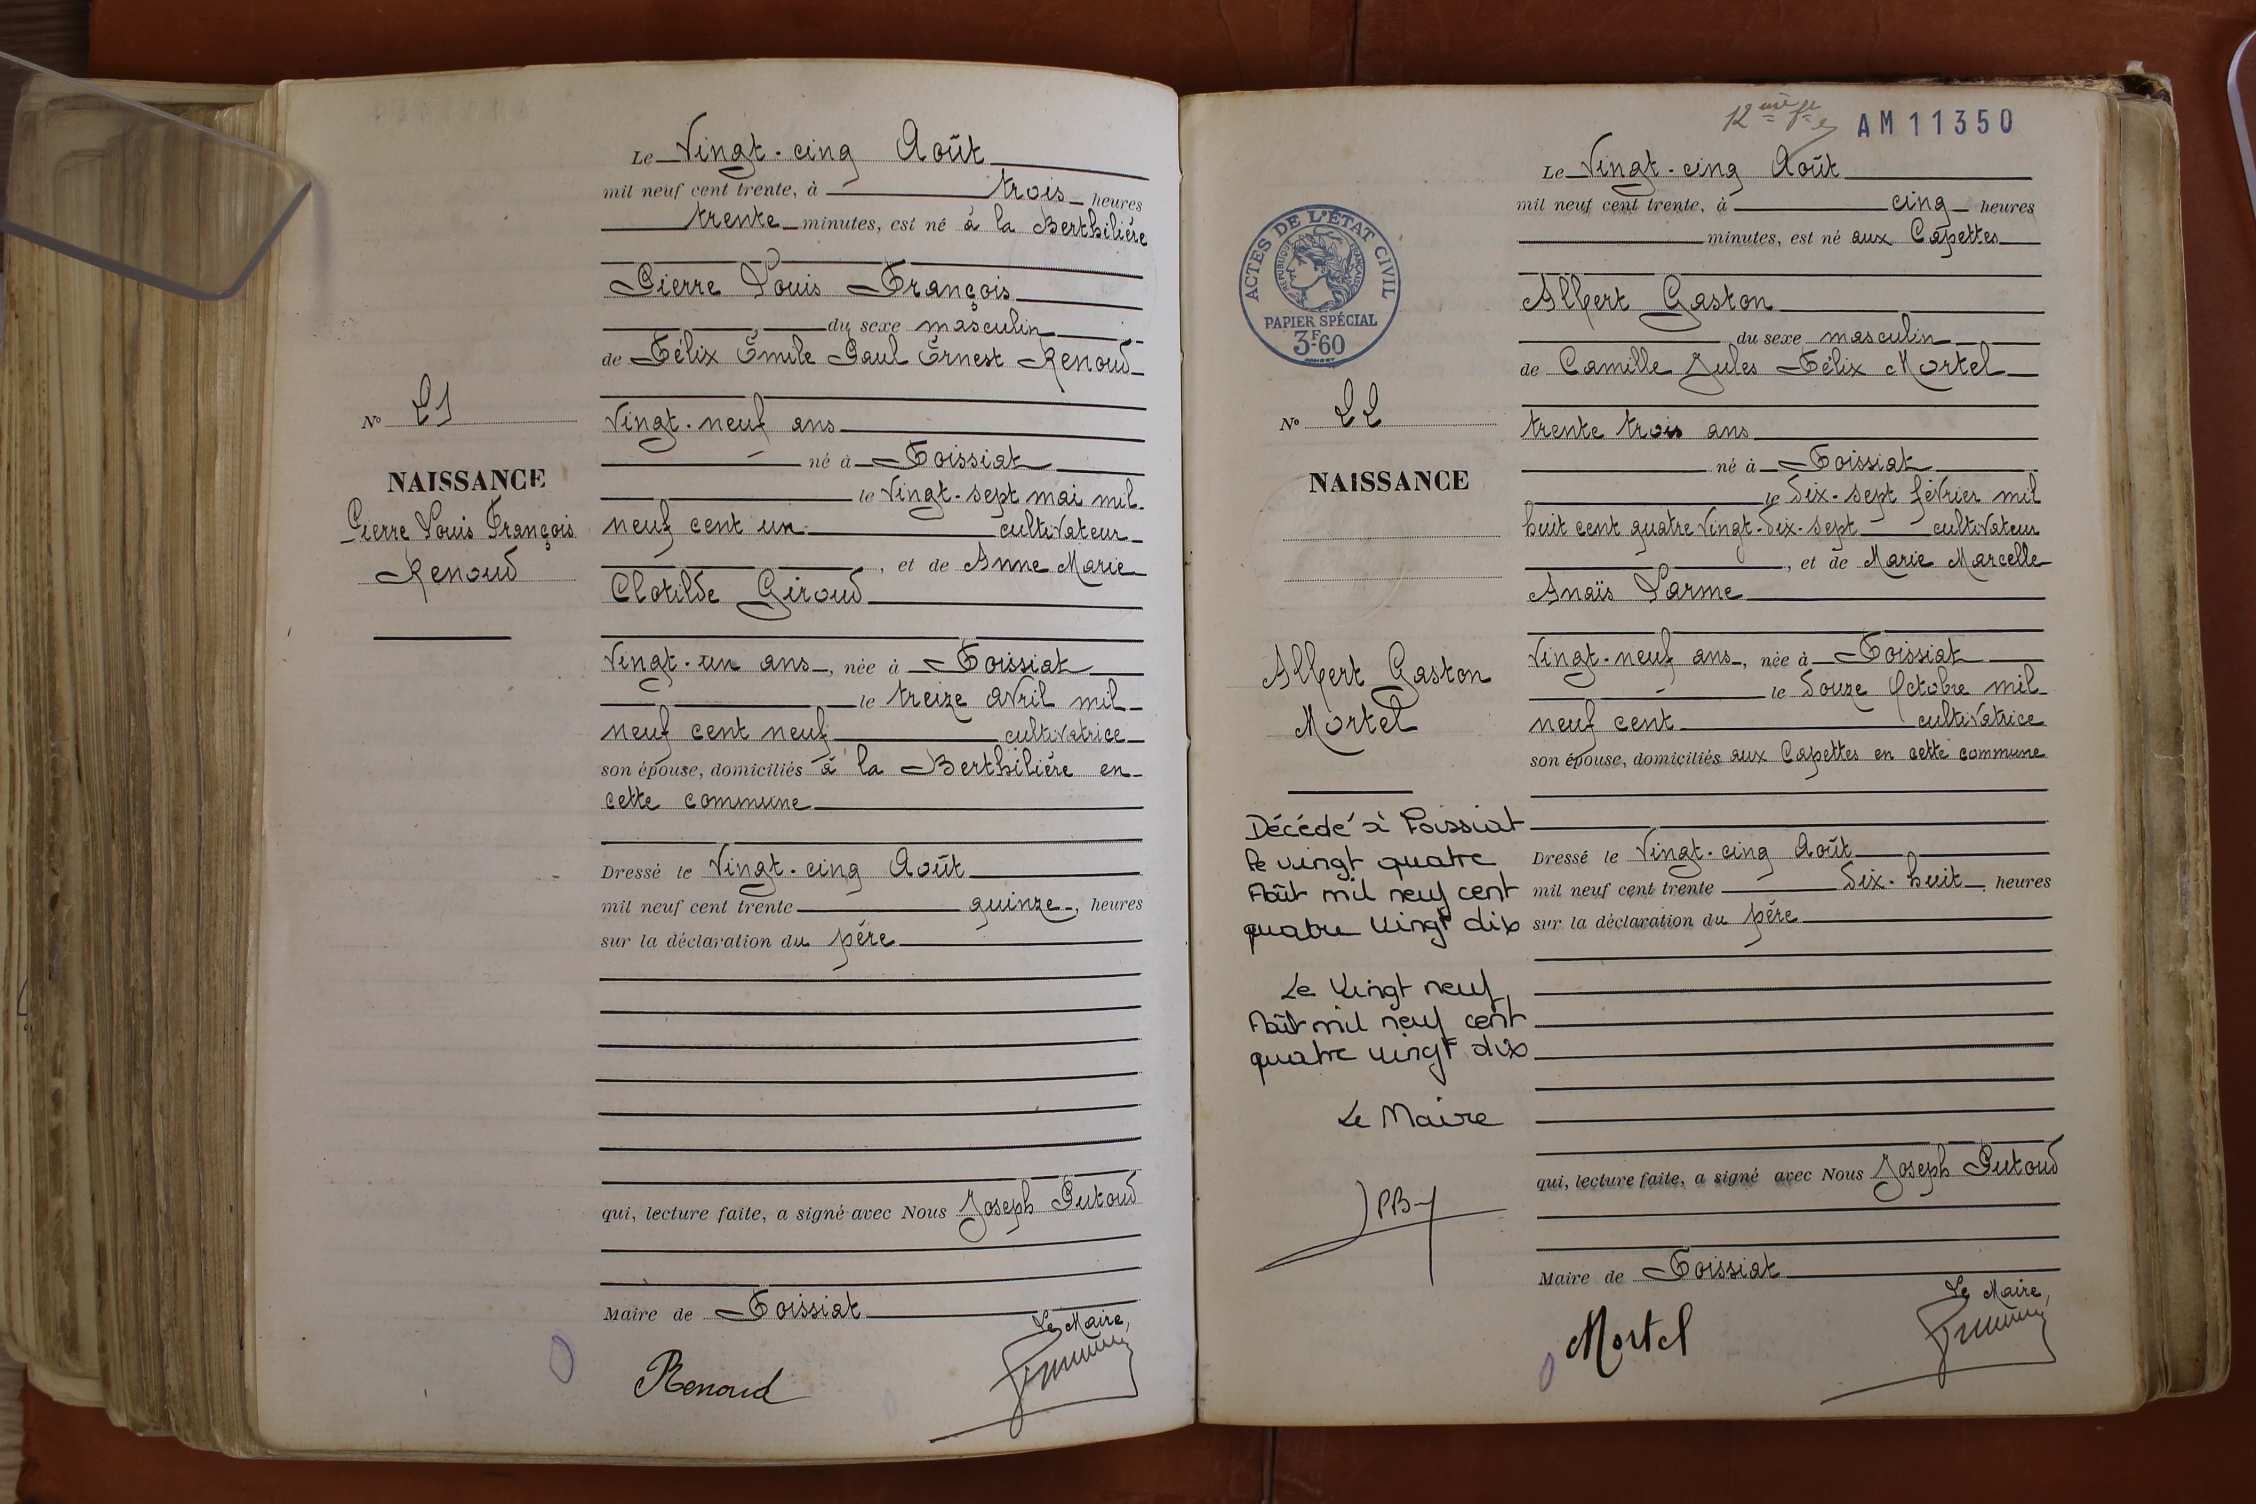 Le Vingt-cinq Août
mil neuf cent trente, à trois heures
trente minutes, est né à la Berthilière
Pierre Louis François
du sexe masculin
de Félix Émile Paul Ernest Renoud
Vingt-neuf ans
né à Foissiat
le Vingt-sept mai mil
neuf cent un cultivateur
, et de Anne Marie
Clotilde Giroud
Vingt-un ans, née à Foissiat
le treize avril mil
neuf cent neuf cultivatrice
son épouse, domiciliés à la Berthilière en
cette commune
Dressé le Vingt-cinq Août
mil neuf cent trente quinze, heures
sur la déclaration du père
qui, lecture faite, a signé avec Nous Joseph Putoud
Maire de Foissiat
Le Maire,
Renoud
No 21
NAISSANCE
Pierre Louis François
Renoud
AM11350
Le Vingt-cinq Août
mil neuf cent trente, à cinq heures
minutes, est né aux Capettes
Albert Gaston
du sexe masculin
de Camille Jules Félix Mortel
trente trois ans
né à Foissiat
le dix-sept février mil
huit cent quatre vingt-dix-sept cultivateur
, et de Marie Marcelle
Anaïs Parme
Vingt-neuf ans, née à Foissiat
le douze Octobre mil
neuf cent cultivatrice
son épouse, domiciliés aux Capettes en cette commune
Dressé le Vingt-cinq Août
mil neuf cent trente dix-huit, heures
sur la déclaration du père
qui, lecture faite, a signé avec Nous Joseph Putoud
Maire de Foissiat
Le Maire,
Mortel
ACTES DE L'ÉTAT CIVIL
RÉPUBLIQUE FRANÇAISE
PAPIER SPÉCIAL
3F60
No 22
NAISSANCE
Albert Gaston
Mortel
Décédé à Foissiat
le vingt quatre
Août mil neuf cent
quatre vingt dix
Le Vingt neuf
Août mil neuf cent
quatre vingt dix
Le Maire